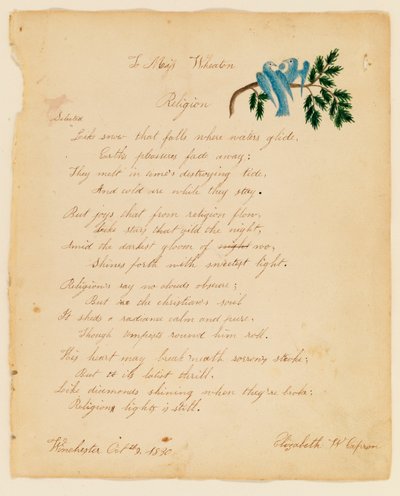 To Miss Wheaton
Religion
Selected
Like snow that falls where waters glide,
Earth's pleasures fade away;
They melt in time's destroying tide,
And cold are while they stay.
But joys that from religion flow,
Like stars that gild the night,
Amid the darkest gloom of night wo,
Shines forth with sweetest light.
Religion's ray no clouds obscure;
But the christian's soul
It sheds a radiance calm and pure,
Though tempests round him roll.
His heart may break neath sorrows stroke;
But its latest thrill,
Like diamonds shining when they're broke,
Religions light is still.
Winchester Oct 1830
Elizabeth W Capron